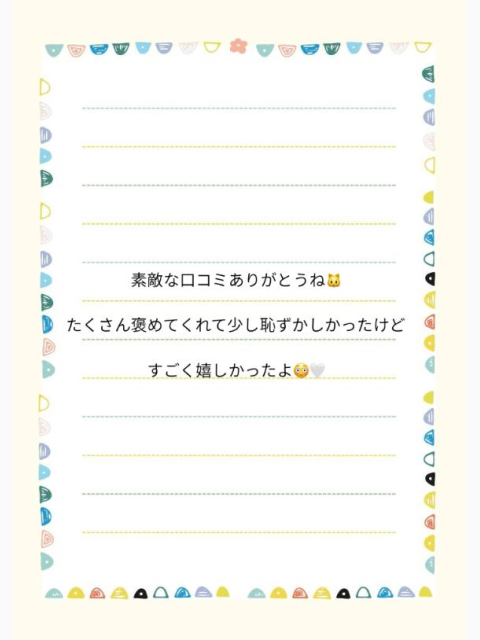 素敵な口コミありがとうね🐱
たくさん褒めてくれて少し恥ずかしかったけど
すごく嬉しかったよ😳🤍